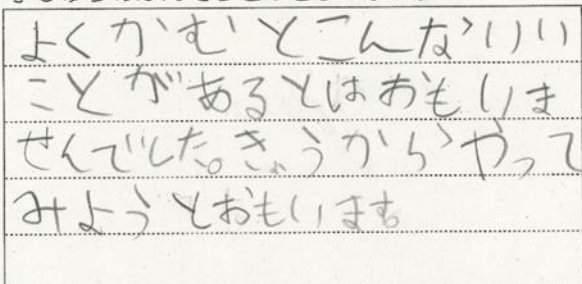 よくかむとこんなにいい
ことがあるとはおもいま
せんでした。きょうからやって
みようとおもいます。